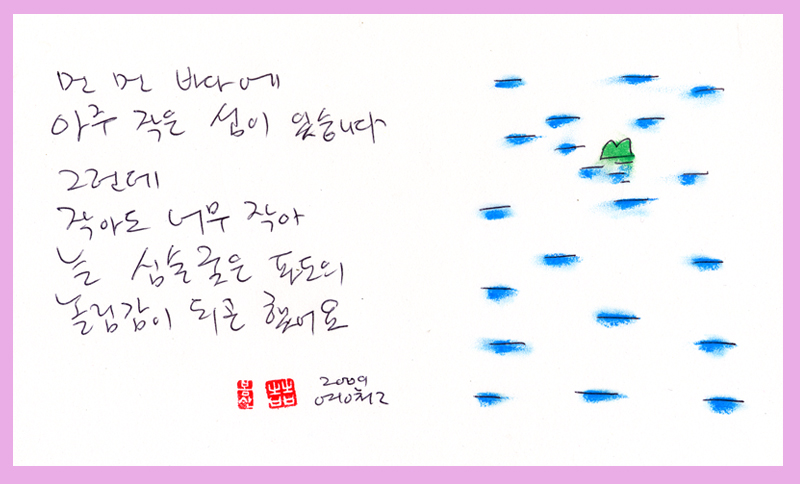 먼 먼 바다에
아주 작은 섬이 있습니다
그런데
작아도 너무 작아
늘 심술궂은 파도의
놀림감이 되곤 했어요
2009